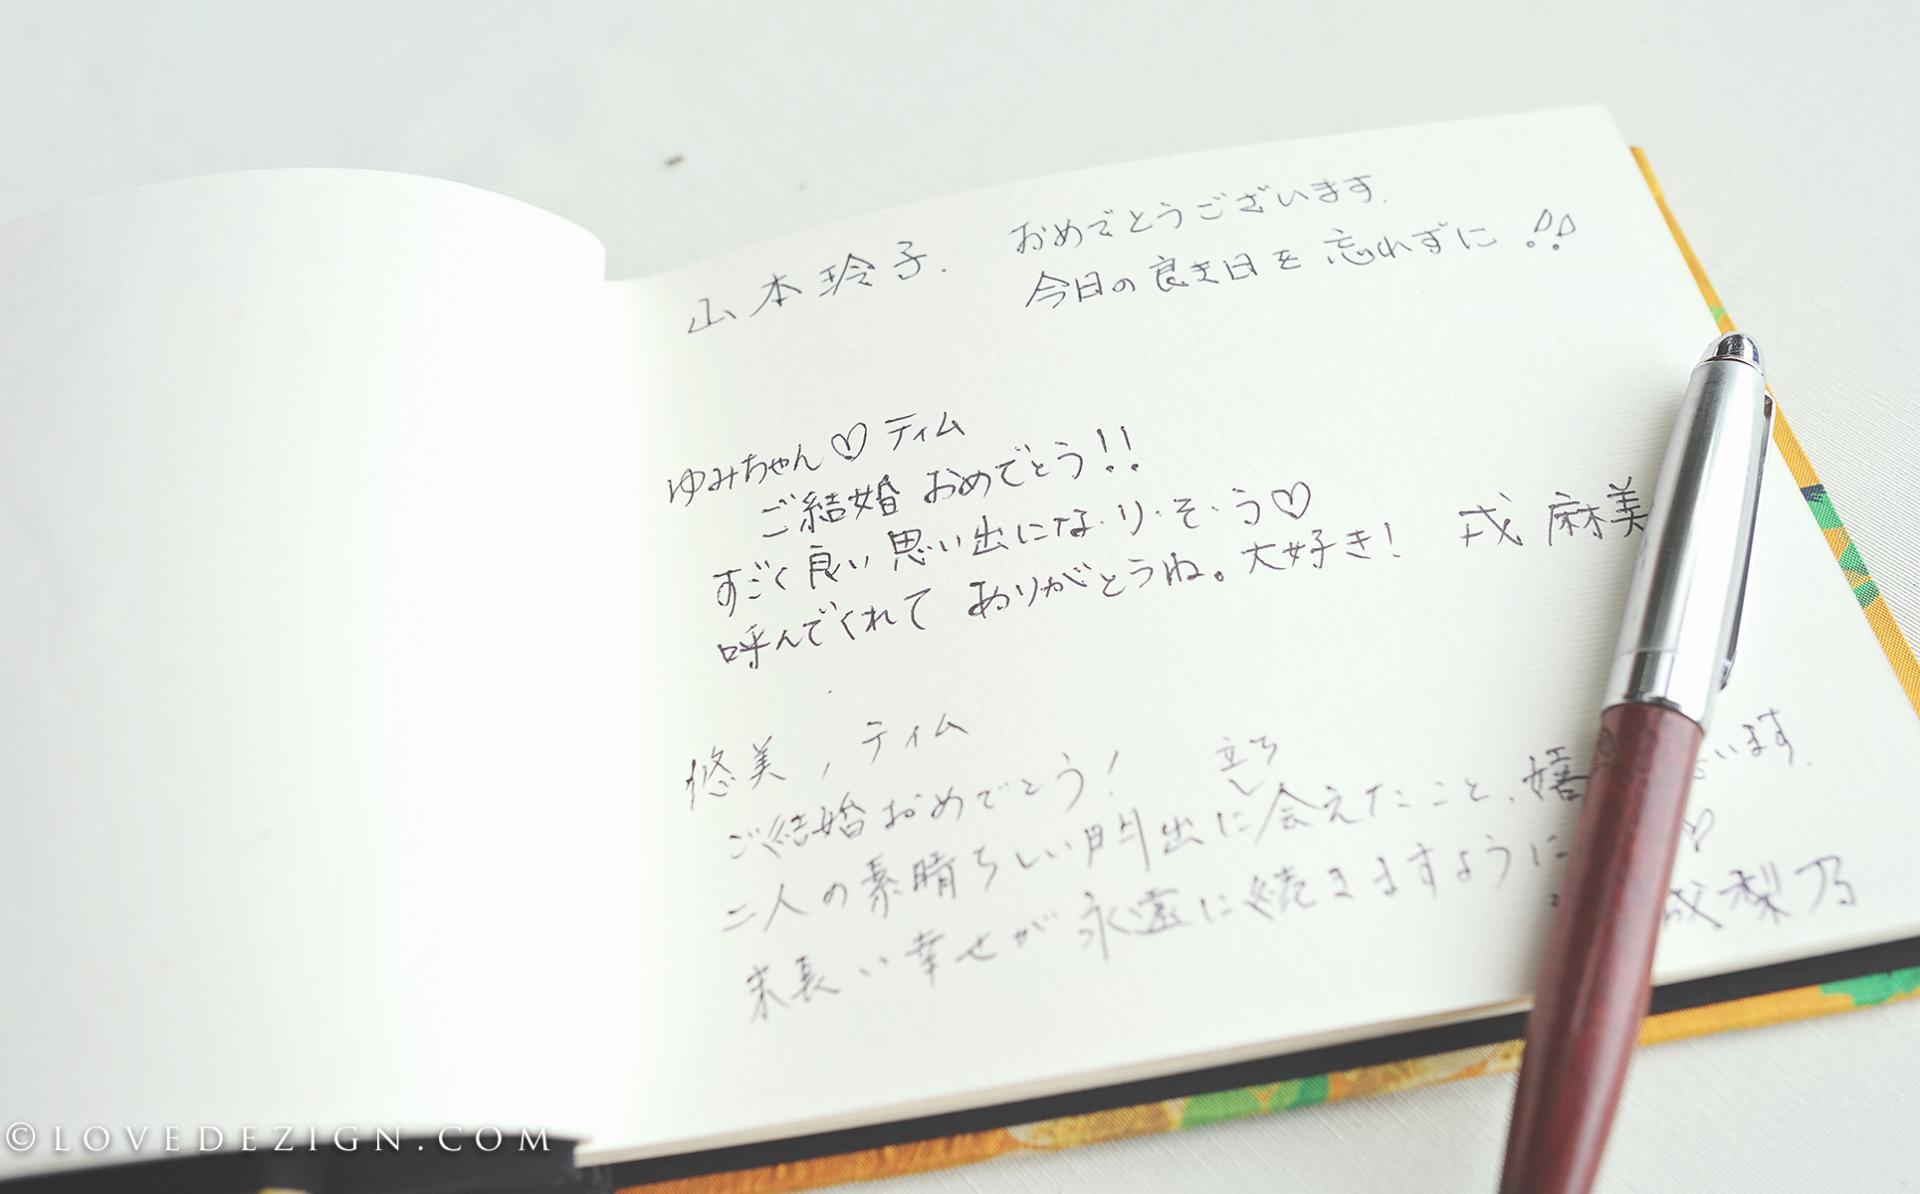 山本玲子.
おめでとうございます.
今日の良き日を忘れずに!!
ゆみちゃん♡ティム
ご結婚おめでとう!!
すごく良い思い出にな・り・そ・う♡
呼んでくれてありがとうね。大好き! 戎 麻美
悠美,ティム
ご結婚おめでとう!
二人の素晴らしい門出に立ち会えたこと、嬉 います.
末長い幸せが永遠に続きますように ♡
梨乃
© LOVEDEZIGN.COM